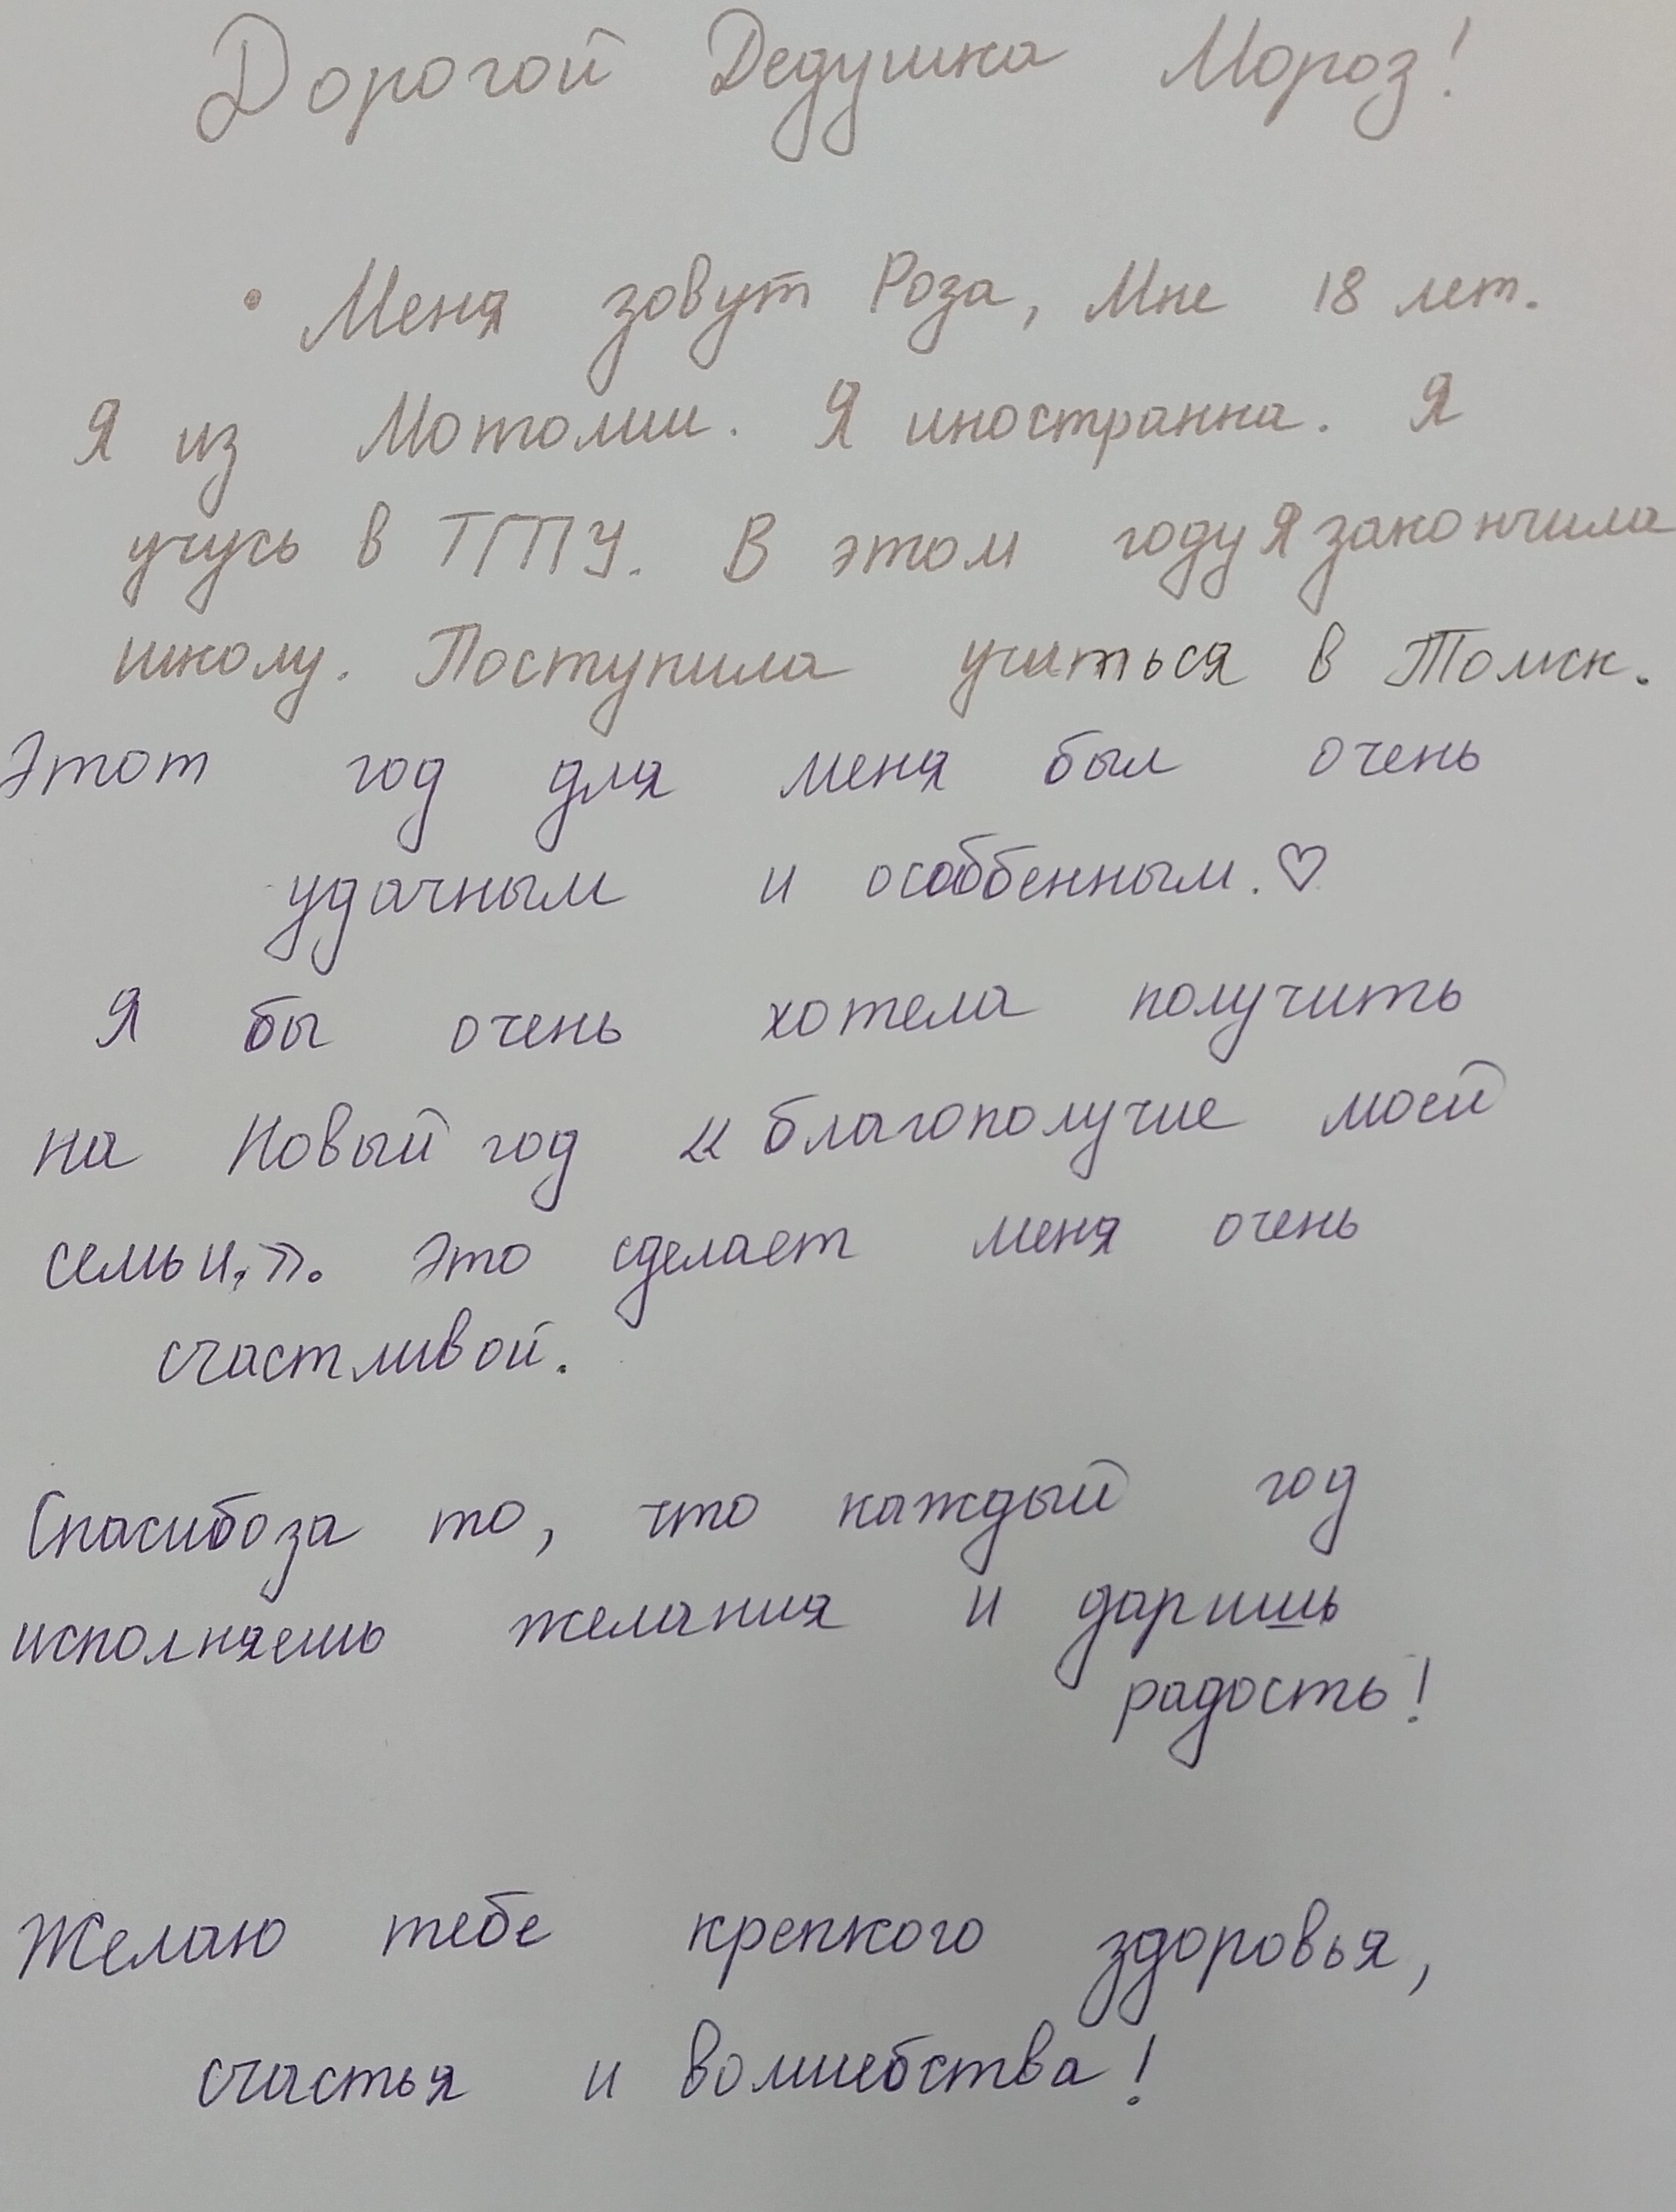 Дорогой Дедушка Мороз!
• Меня зовут Роза, Мне 18 лет.
Я из Мотолии. Я иностранна. Я
учусь в ТГПУ. В этом году я закончила
школу. Поступила учиться в Томск.
Этот год для меня был очень
удачным иособбенным. ♡
Я бы очень хотела получить
на Новый год «благополучие моей
семьи.». Это сделает меня очень
счастливой.
Спасибо за то, что каждый год
исполняешь желания и даришь
радость!
Желаю тебе крепкого здоровья,
счастья и волшебства!